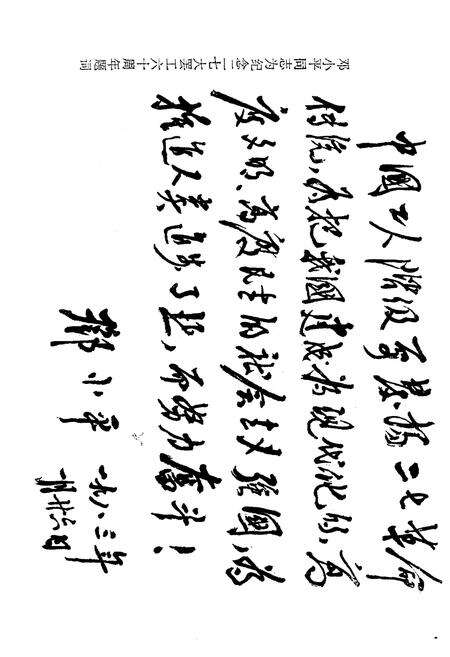 邓小平同志为纪念二七大罢工六十周年题词
中國工人階级要發揚二七革命
传统，为把我國建成为现代化的、高
度文明、高度民主的社会主义强國，为
推进人类进步事业，而努力奮斗！
鄧小平
一九八三年
一月廿六日